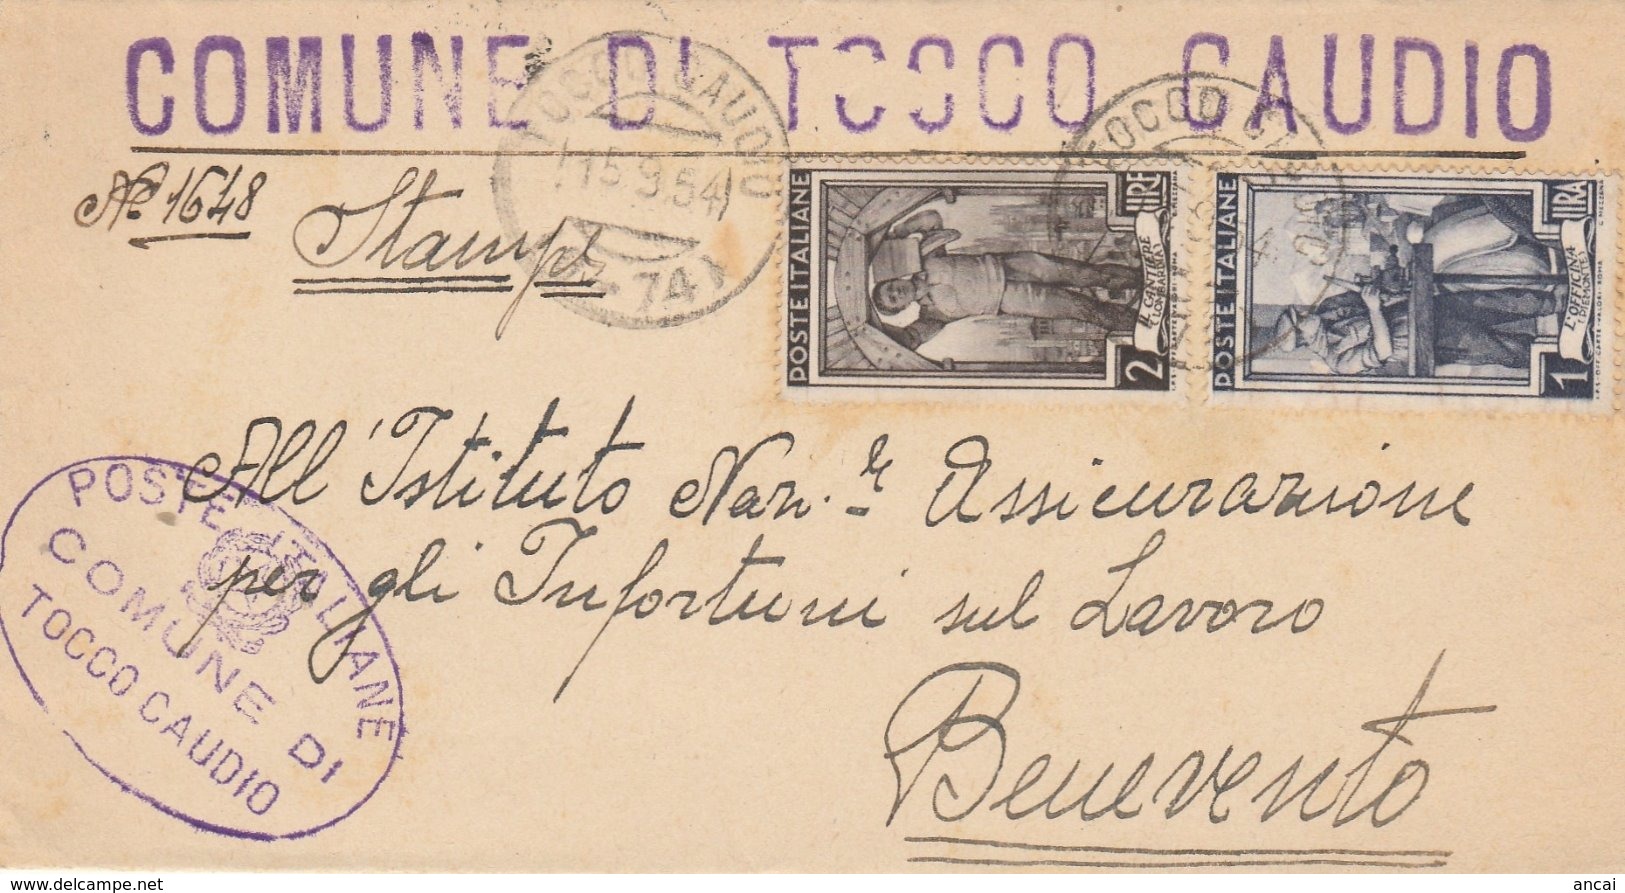 COMUNE DI TOCCO CAUDIO
TOCCO CAUDIO
15.9.54
74
TOCCO CAUDIO
Nº 1648
Stampe
POSTE ITALIANE
2 LIRE
IL CANTIERE
(LOMBARDIA)
POSTE ITALIANE
1 LIRA
L'OFFICINA
(PIEMONTE)
All'Istituto Naz.le Assicurazione
per gli Infortuni sul Lavoro
Benevento
POSTE ITALIANE
COMUNE DI
TOCCO CAUDIO
www.delcampe.net
ancai